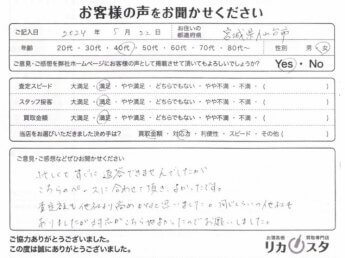 お客様の声をお聞かせください
ご記入日 2024年 5月 22日 お住いの都道府県 宮城県仙台市
年齢 20代・30代・40代・50代・60代・70代・80代〜 性別 男・女
ご意見・ご感想を弊社ホームページにお客様の声として掲載させて頂いてもよろしいでしょうか? Yes・No
査定スピード 大満足・満足・やや満足・どちらでもない・やや不満・不満・( )
スタッフ接客 大満足・満足・やや満足・どちらでもない・やや不満・不満・( )
買取金額 大満足・満足・やや満足・どちらでもない・やや不満・不満・( )
当店をお選びいただきました決め手は? 買取金額・対応力・利便性・スピード・その他( )
ご意見・ご感想などぜひお聞かせください
忙しくてすぐに返答できませんでしたが
こちらのペースに合わせて頂き、よかったです。
査定額も他社より高めだと思いました。同じくらいの他社も
ありましたが対応がこちらの方がよかったのでお願いしました。
ご協力ありがとうございました。
この度は誠にありがとうございました。
お酒高額買取専門店
リカスタ